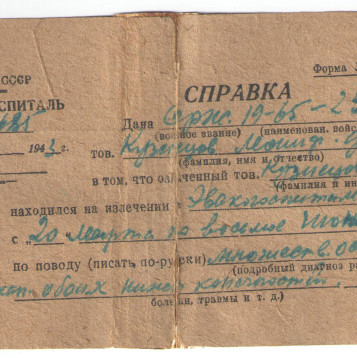 СССР
Форма
СПИТАЛЬ
СПРАВКА
Дана Срж. 19-65-2
(воинское звание) (наименован. войс
1943 г. тов. Кузнецов
(фамилия, имя и отчество)
в том, что означенный тов. Кузнецов
(фамилия и и
находился на излечении в Эвакогоспитал
с 20 марта по восьмое
по поводу (писать по-русски) множеств. ос
(подробный диагноз р
обоих нижн. конечностей
болезни, травмы и т. д.)